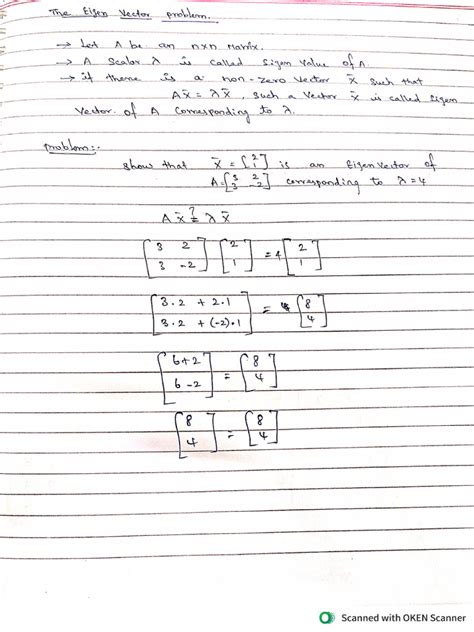 The Eigen Vector problem.
→ Let A be an nxn Matrix.
→ A Scalar λ is called Eigen Value of A.
→ if theme is a non-zero Vector x̄ such that
Ax̄ = λx̄, such a Vector x̄ is called Eigen
Vector of A Corresponding to λ.
problem:-
Show that x̄ = [2 1] is an Eigen Vector of
A = [3 2 3 -2] corresponding to λ=4
A x̄ ?= λ x̄
[3 2 3 -2] [2 1] = 4 [2 1]
[3.2 + 2.1 3.2 + (-2).1] = [8 4]
[6+2 6-2] = [8 4]
[8 4] = [8 4]
Scanned with OKEN Scanner